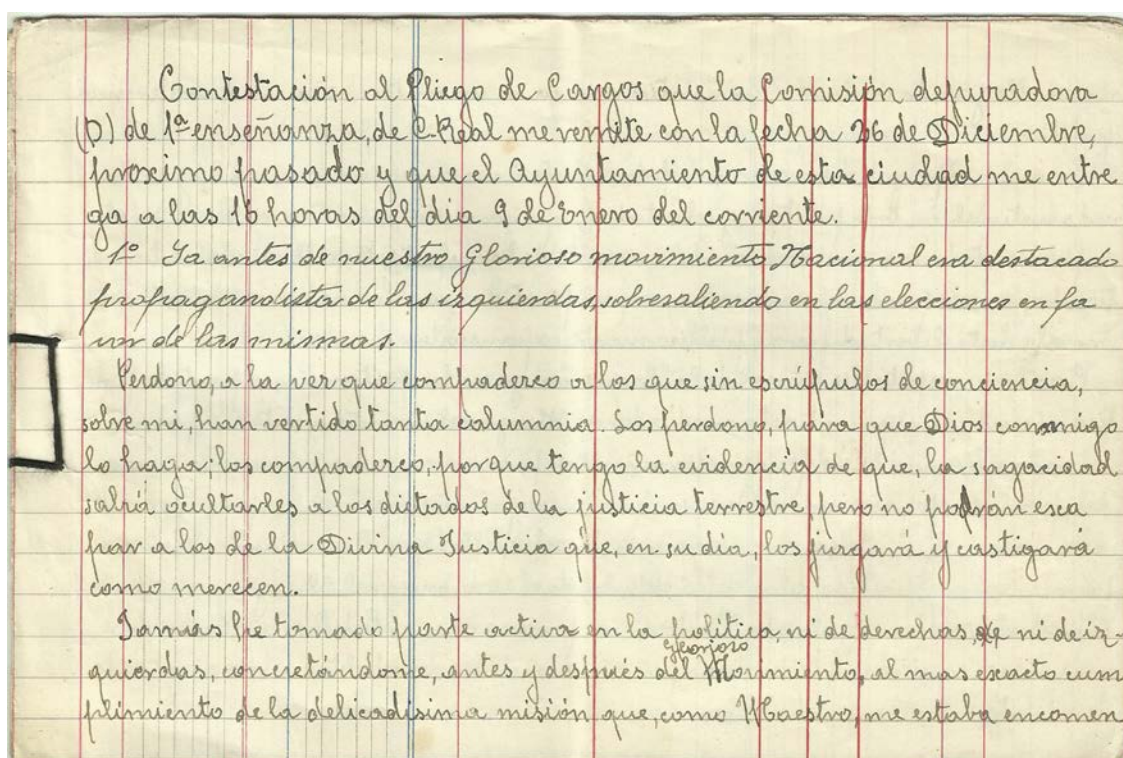 Contestación al Pliego de Cargos que la Comisión depuradora
(D) de 1ª enseñanza, de C-Real me remite con la fecha 26 de Diciembre,
proximo pasado y que el Ayuntamiento de esta ciudad me entre
ga a las 16 horas del dia 9 de Enero del corriente.
1º Ya antes de nuestro Glorioso movimiento Nacional era destacado
propagandista de las izquierdas, sobresaliendo en las elecciones en fa
vor de las mismas.
Perdono, a la vez que compaderco a los que sin escrúpulos de conciencia,
sobre mi, han vertido tanta calumnia. Los perdono, para que Dios conmigo
lo haga; los compaderco, porque tengo la evidencia de que, la sagacidad
sabrá ocultarles a los dictados de la justicia terrestre, pero no podrán esca
par a los de la Divina Justicia que, en su día, los juzgará y castigará
como merecen.
Jamás he tomado parte activa en la política, ni de derechas, ni de iz-
quierdas, concretándome, antes y después del Glorioso Movimiento, al mas exacto cum
plimiento de la delicadísima misión que, como Maestro, me estaba encomen